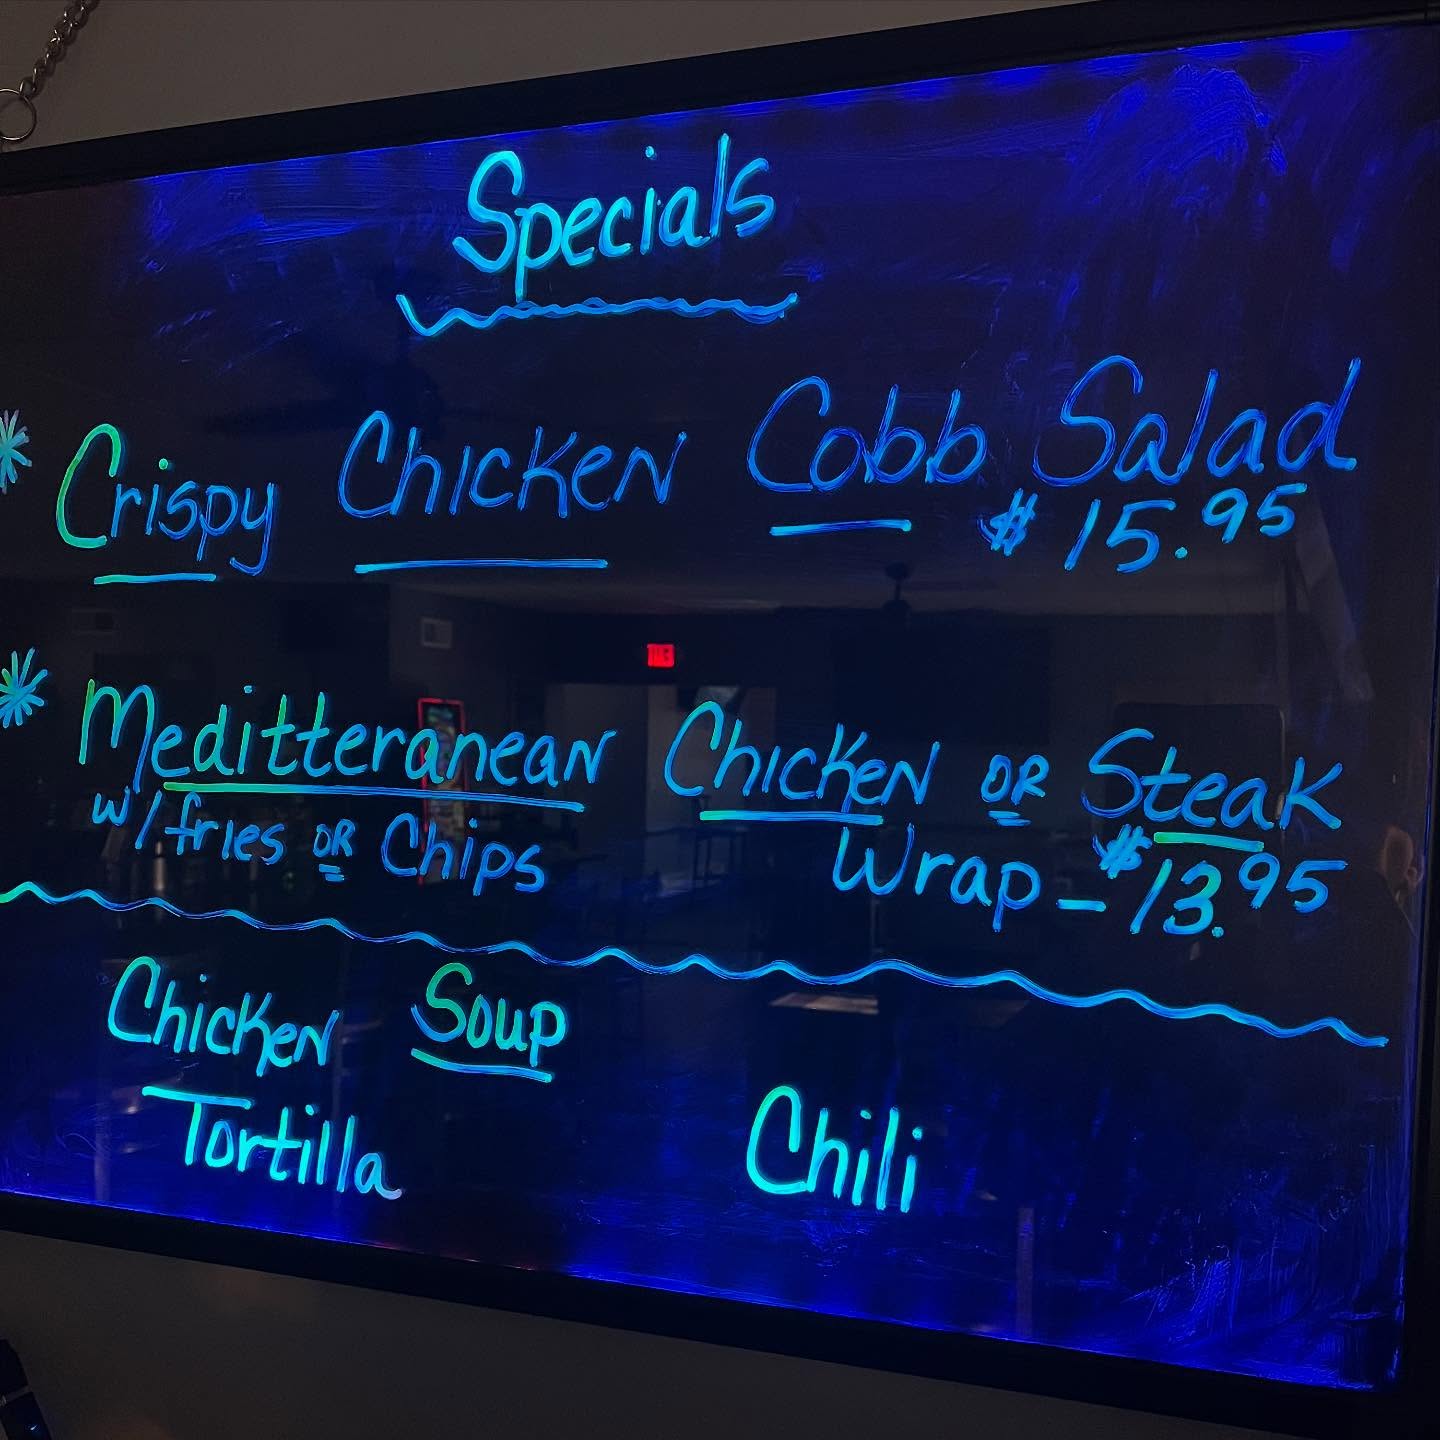 Specials
* Crispy Chicken Cobb Salad
$15.95
* Meditteranean Chicken OR Steak
w/fries OR Chips Wrap - $13.95
Chicken Soup
Tortilla Chili